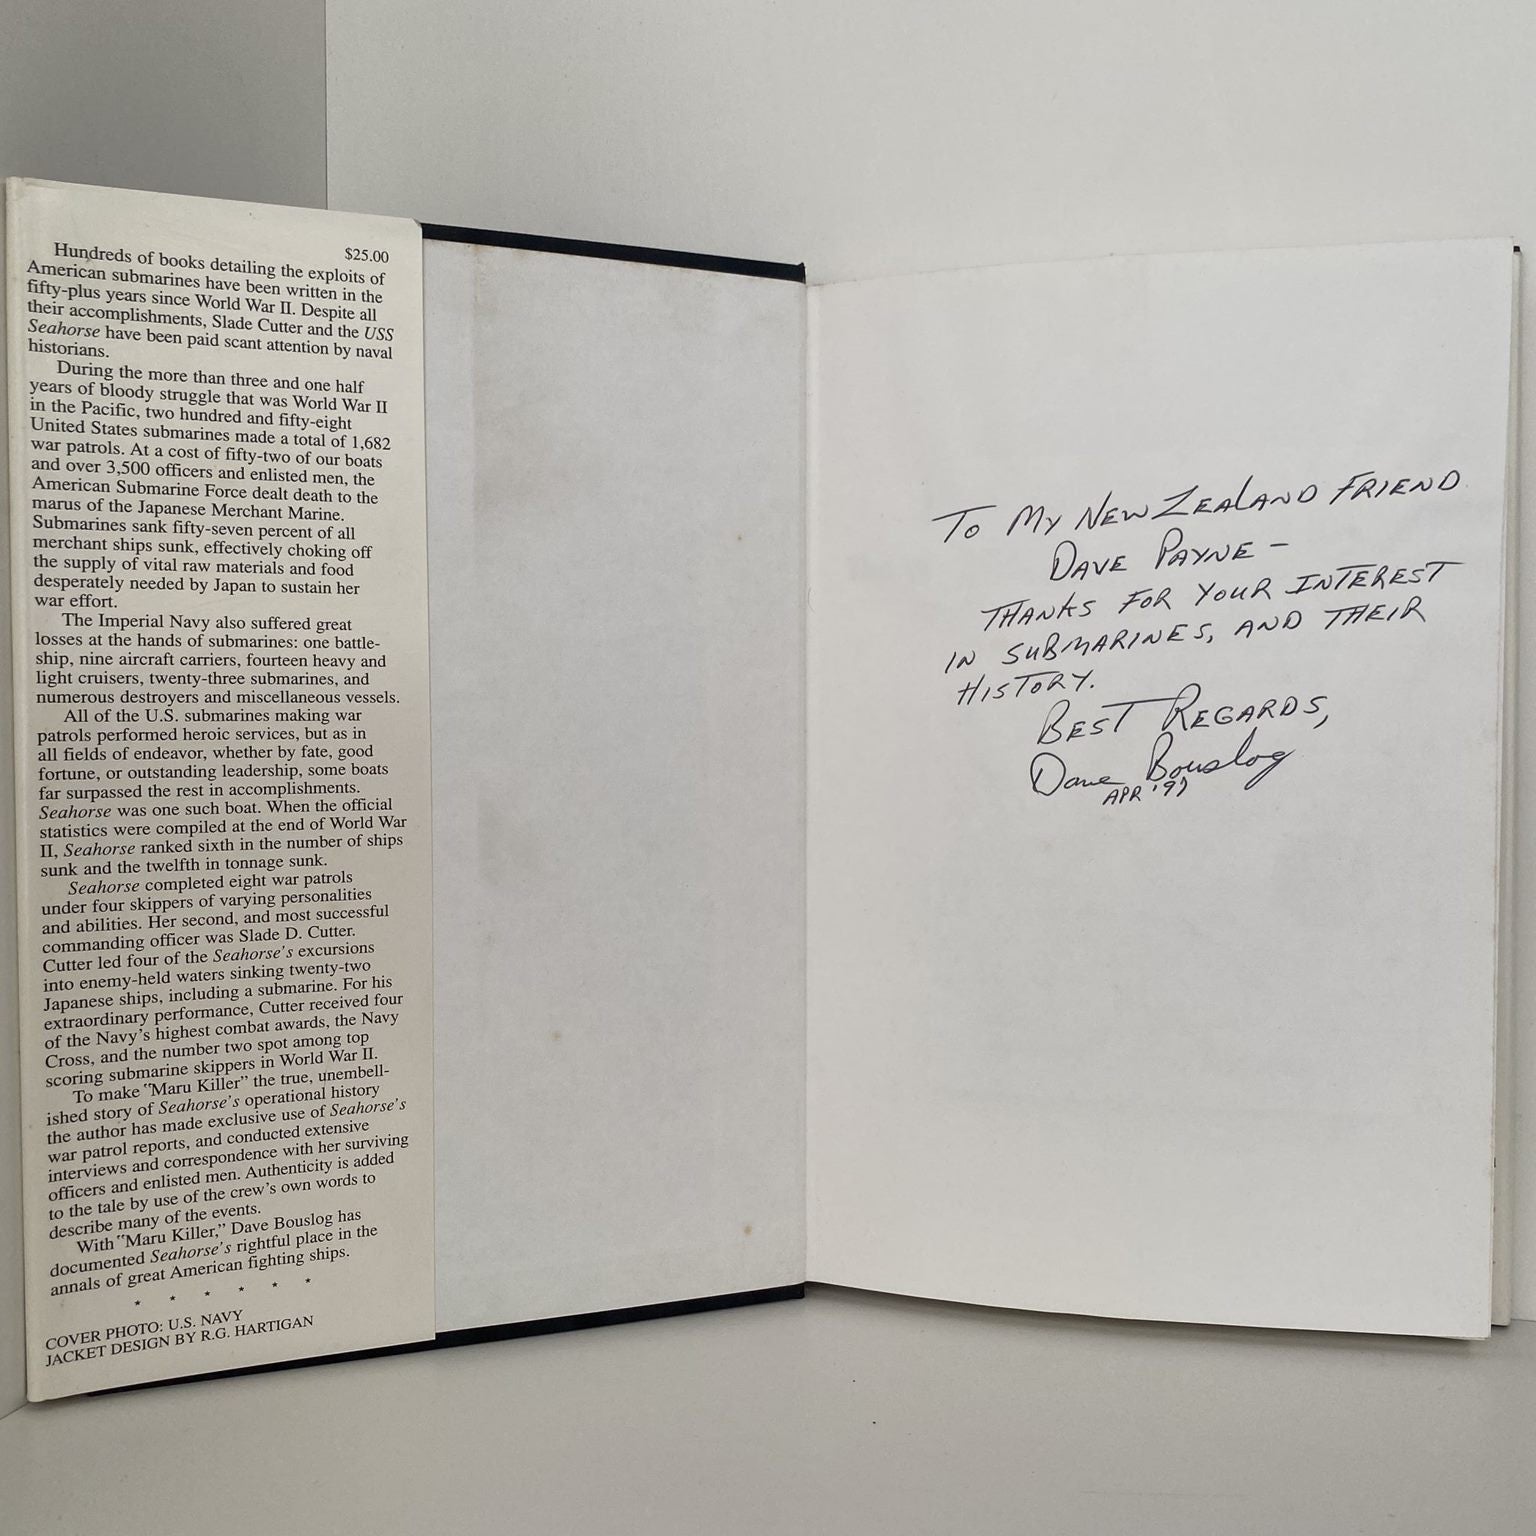 $25.00
Hundreds of books detailing the exploits of
American submarines have been written in the
fifty-plus years since World War II. Despite all
their accomplishments, Slade Cutter and the USS
Seahorse have been paid scant attention by naval
historians.
During the more than three and one half
years of bloody struggle that was World War II
in the Pacific, two hundred and fifty-eight
United States submarines made a total of 1,682
war patrols. At a cost of fifty-two of our boats
and over 3,500 officers and enlisted men, the
American Submarine Force dealt death to the
marus of the Japanese Merchant Marine.
Submarines sank fifty-seven percent of all
merchant ships sunk, effectively choking off
the supply of vital raw materials and food
desperately needed by Japan to sustain her
war effort.
The Imperial Navy also suffered great
losses at the hands of submarines: one battle-
ship, nine aircraft carriers, fourteen heavy and
light cruisers, twenty-three submarines, and
numerous destroyers and miscellaneous vessels.
All of the U.S. submarines making war
patrols performed heroic services, but as in
all fields of endeavor, whether by fate, good
fortune, or outstanding leadership, some boats
far surpassed the rest in accomplishments.
Seahorse was one such boat. When the official
statistics were compiled at the end of World War
II, Seahorse ranked sixth in the number of ships
sunk and the twelfth in tonnage sunk.
Seahorse completed eight war patrols
under four skippers of varying personalities
and abilities. Her second, and most successful
commanding officer was Slade D. Cutter.
Cutter led four of the Seahorse's excursions
into enemy-held waters sinking twenty-two
Japanese ships, including a submarine. For his
extraordinary performance, Cutter received four
of the Navy's highest combat awards, the Navy
Cross, and the number two spot among top
scoring submarine skippers in World War II.
To make "Maru Killer" the true, unembell-
ished story of Seahorse's operational history
the author has made exclusive use of Seahorse's
war patrol reports, and conducted extensive
interviews and correspondence with her surviving
officers and enlisted men. Authenticity is added
to the tale by use of the crew's own words to
describe many of the events.
With "Maru Killer," Dave Bouslog has
documented Seahorse's rightful place in the
annals of great American fighting ships.
* * * * * *
COVER PHOTO: U.S. NAVY
JACKET DESIGN BY R.G. HARTIGAN
TO MY NEW ZEALAND FRIEND
DAVE PAYNE -
THANKS FOR YOUR INTEREST
IN SUBMARINES, AND THEIR
HISTORY.
BEST REGARDS,
Dave Bouslog
APR '97